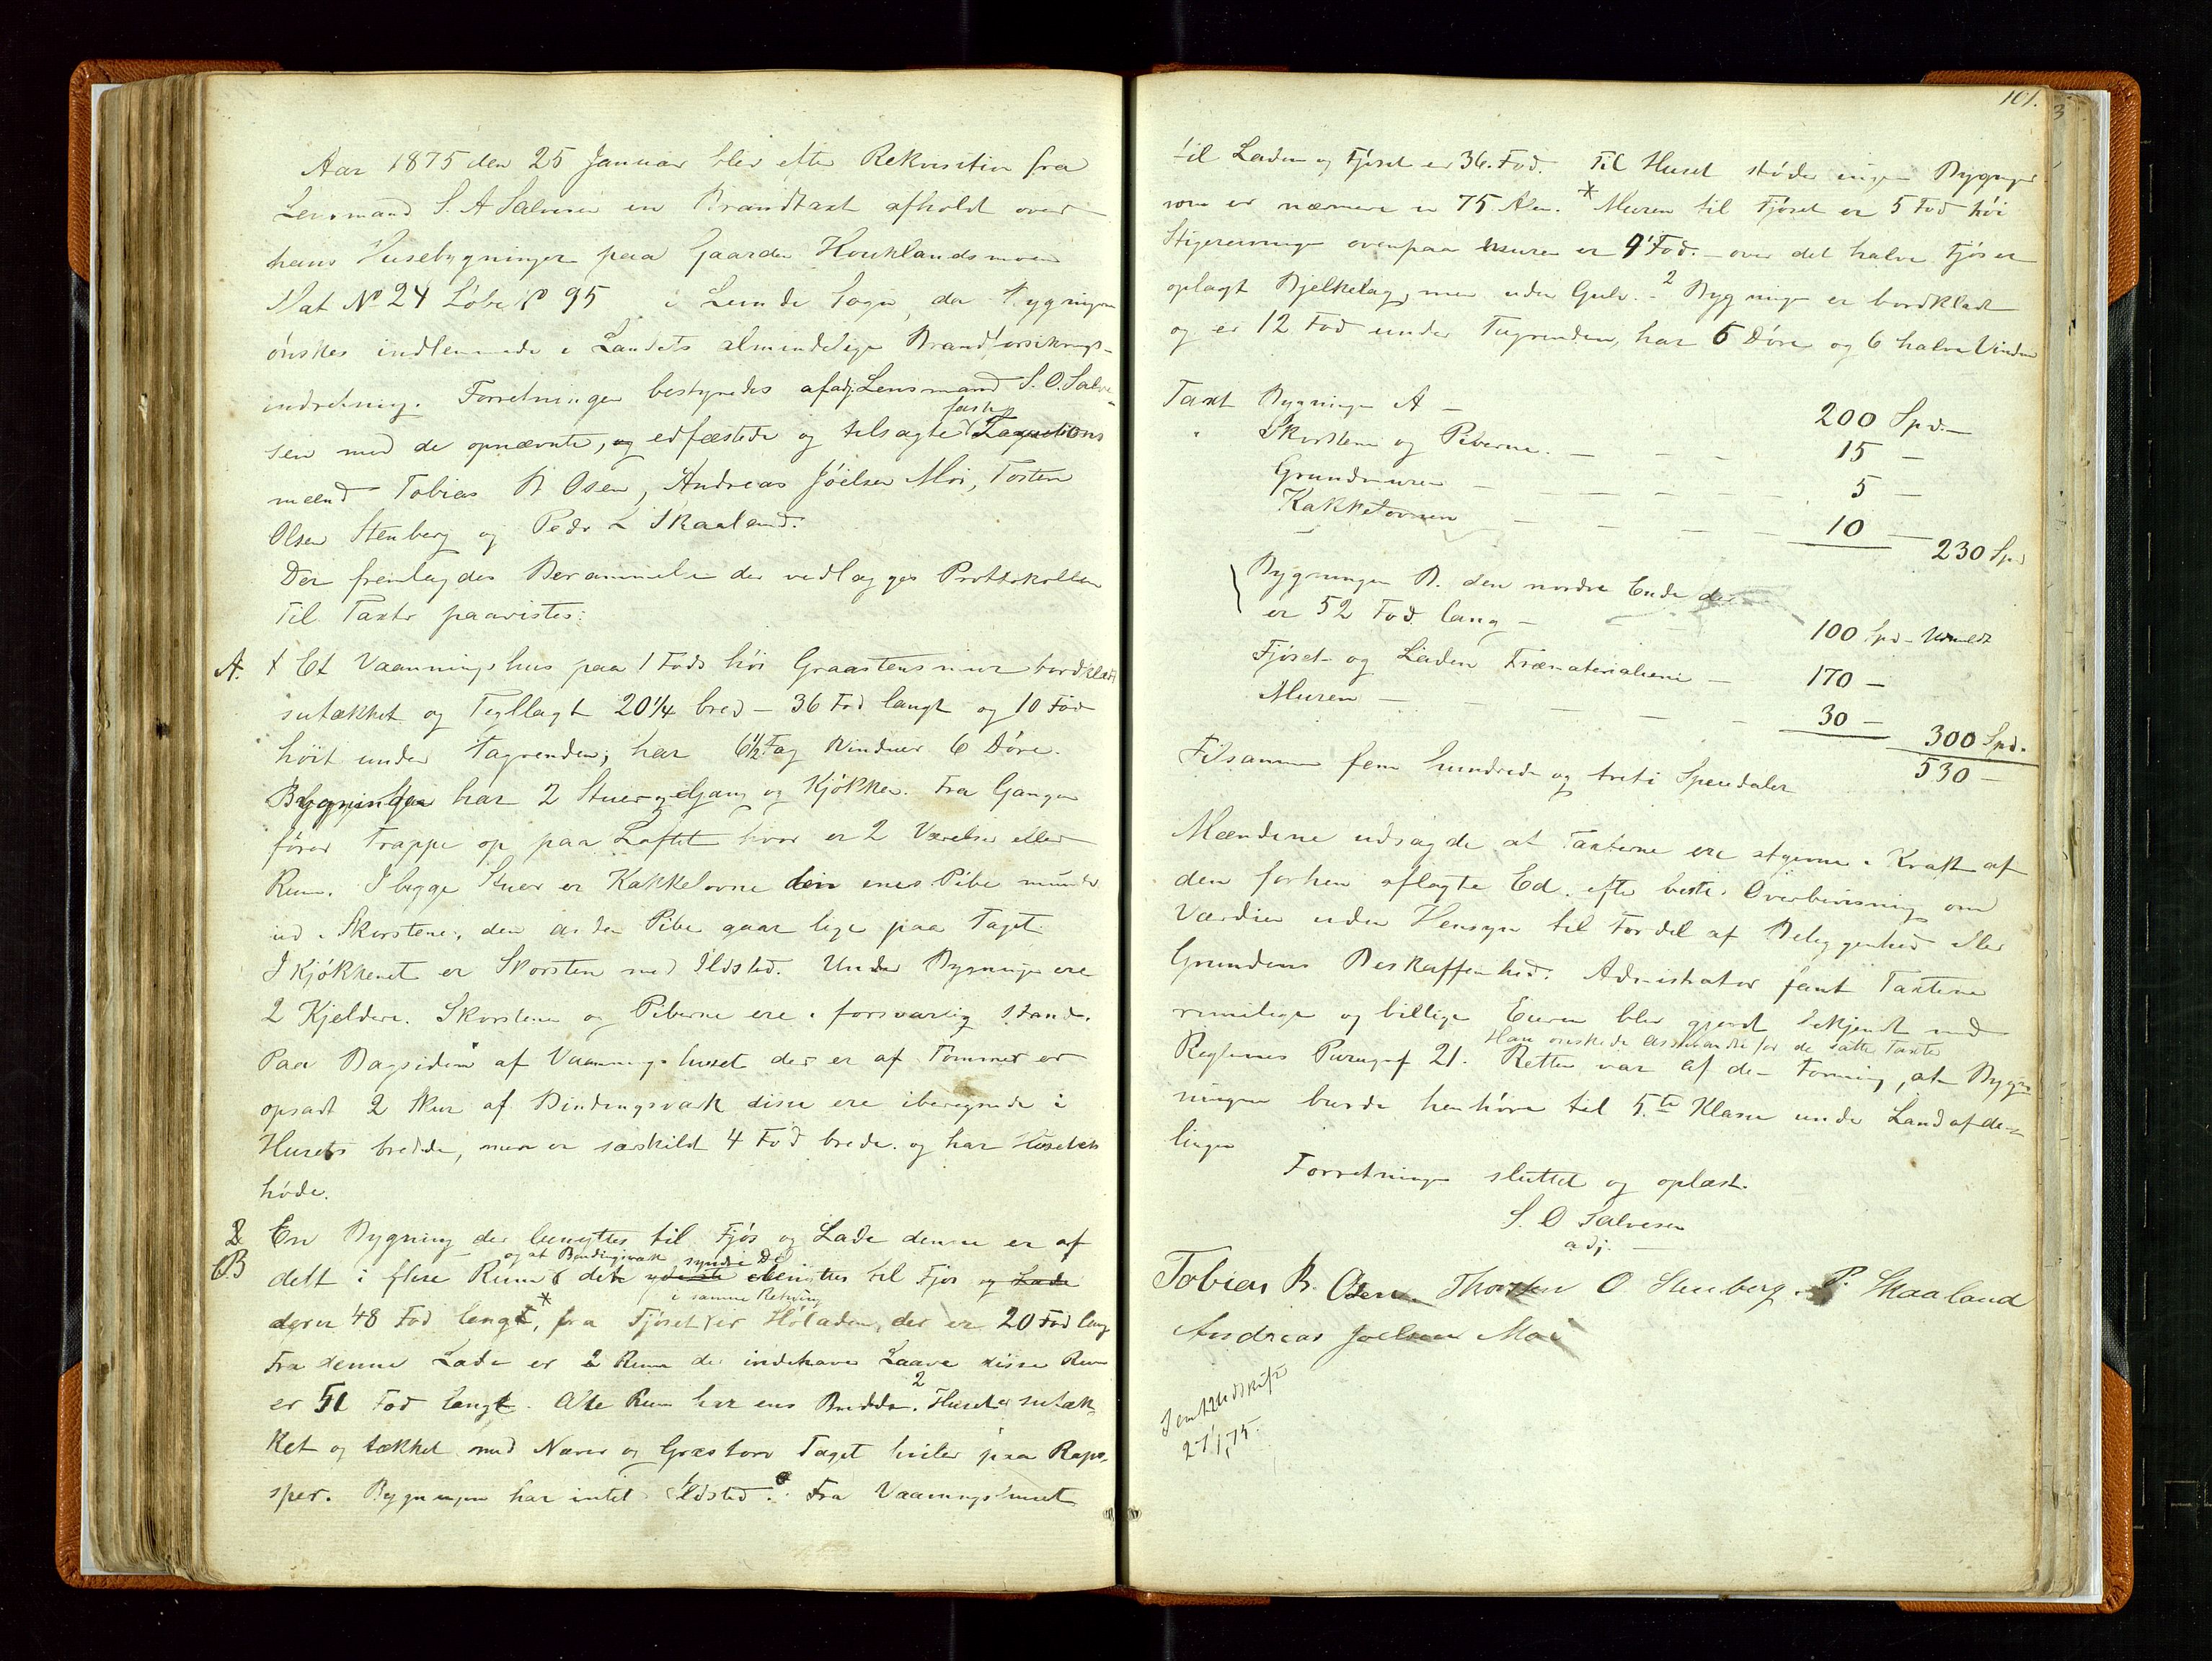 Aar 1875 den 25 Januar blev efter Rekvisition fra
Lensmand S. A Salvesen en Brandtaxt afholdt over
hans Husebygninger paa Gaarden Houklandsmoen
Mat No 24 Løbe No 95 i Lunde Sogn, da Bygningen
ønskes indlemmede i Landets almindelige Brandforsikrings-
indretning. Forretningen bestyredes af adj. Lensmand S. O. Salve-
faste
sen med de opnævnte, og edfæstede og tilsagte Taxations
mænd Tobias B Osen, Andreas Jóelsen Moi, Tosten
Olsen Stenberg og Peder L Skaaland.
Der fremlagdes Berammelse der vedlægges Prottokollen
Til Taxt paavistes:
A. 1 Et Vaaningshus paa 1 Fods høi Graastensmur bordklædt
sutækket og Tegllagt 20 1/4 bred - 36 Fod langt og 10 Fod
høit under Tagrenden; har 6 1/2 Fag Vinduer 6 Døre.
Bygningen har 2 Stuer og Gang og Kjøkken. Fra Gangen
fører Trappe op paa Loftet hvor er 2 Værelser eller
Rum. I begge Stuer er Kakkelovne den enes Pibe munder
ud i Skorstenen, den anden Pibe gaar lige paa Taget.
I Kjøkkenet er Skorsten med Ildsted. Under Bygningen ere
2 Kjeldere. Skorstenen og Piberne ere i forsvarlig Stand.
Paa Bagsiden af Vaaningshuset der er af Tømmer er
opsadt 2 Skur af Bindingsværk disse ere iberegnede i
Husets bredde, men er særskildt 4 Fod brede og har Husets
høide.
2 En Bygning der benyttes til Fjøs og Lade denne er af
og af Bindingsværk syndre Del
B delt i flere Rum det yderste benyttes til Fjøs og Lade
i samme Retning
der er 48 Fod langt,* fra Fjøset er Høladen, der er 20 Fod lang
Fra denne Lade er 2 Rum der indehaver Laave disse Rum
er 51 Fod langt. Alle Rum har ens Bredde. 2 Huset er sutæk-
ket og tækket med Næver og Græstorv Taget hviler paa Rapo-
sper. Bygningen har intet Ildsted. Fra Vaaningshuset
101.
til Laden og Fjøset er 36. Fod. Til Huset støder ingen Bygninger
som er nærmere en 75 Alen. * Muren til Fjøset er 5 Fod høi
Stigereisning ovenpaa Muren er 9 Fod. - over det halve Fjøs er
oplagt Bjelkelag, men uden Gulv. - 2 Bygningen er bordklædt
og er 12 Fod under Tagrenden, har 6 Døre og 6 halve Vinduer
Taxt Bygningen A - 200 Spd. -
" Skorstenen og Piberne. - - - 15 -
Grundmuren - - - - - 5 -
Kakkelovnen - - - - 10 - 230 Spd
Bygningen B. den nordre Ende der
er 52 Fod lang - 100 Spd -
Fjøset og Laden Træmaterialierne - 170 -
Muren - - - - - 30 - 300 Spd.
Tilsammen fem hundrede og treti Speciedaler 530 -
Mændene udsagde at Taxterne ere afgivne i Kraft af
den forhen aflagte Ed efter bedste Overbevisning om
Værdien uden Hensyn til Fordel af Beliggenhed eller
Grundens Beskaffenhed. Administrator fant Taxterne
rimelige og billige Eieren blev gjort bekjendt med
Han ønskede Assurandse for de satte Taxter
Reglernes Paragraf 21. Retten var af den Formening, at Byg-
ningen burde henhøre til 5.te Klasse under Landafde-
lingen
Forretningen sluttet og oplæst.
S. O Salvesen
adj.
Tobias B. Osen. Thorsten O. Stenberg. P. Skaaland
Andreas Joelsen Moi
Sent Udskrift
27/1 75.